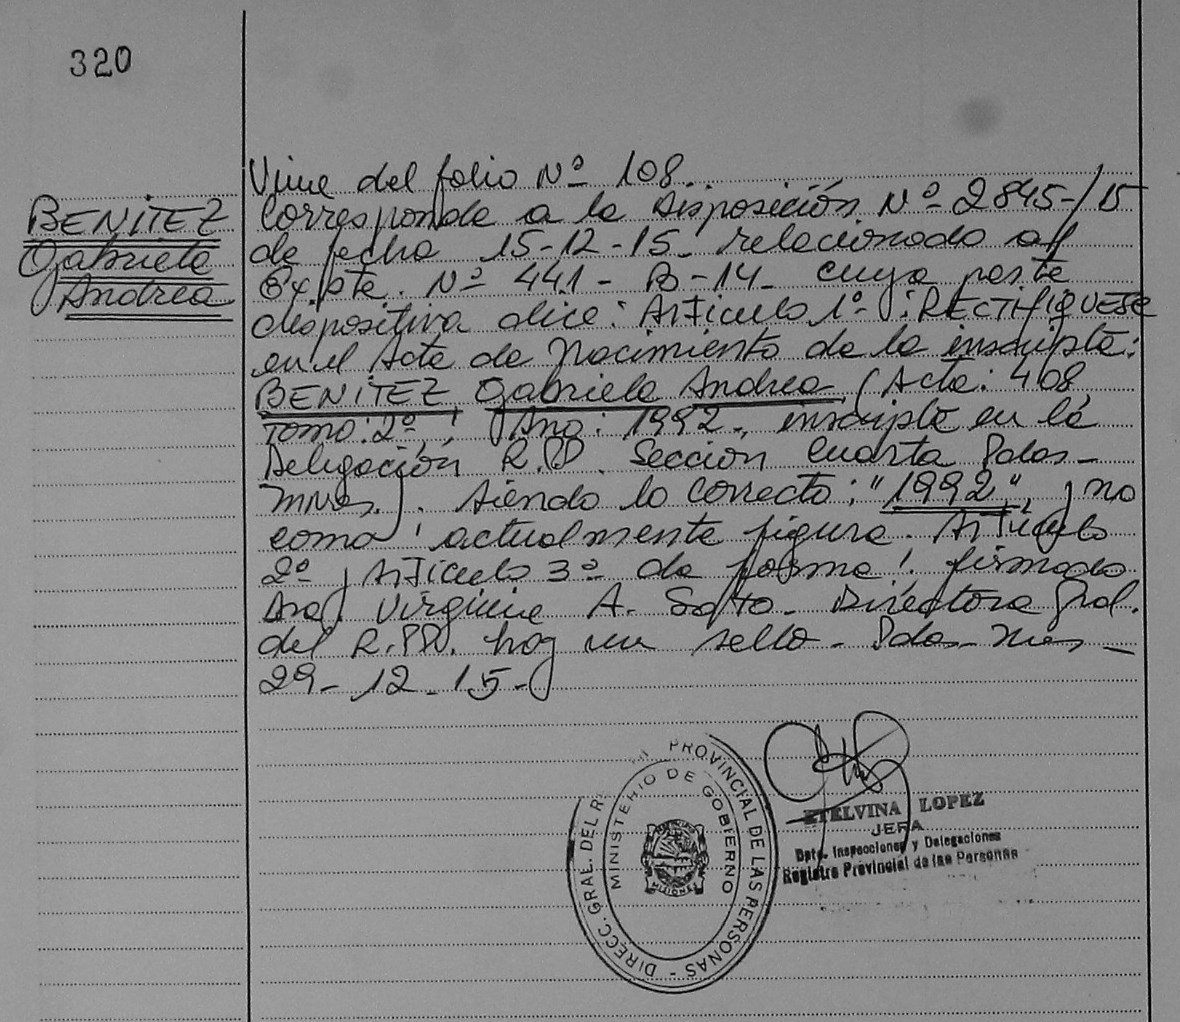 320
BENITEZ
Gabriela
Andrea
Viene del folio Nº 108.
Corresponde a la Disposición Nº 2845-/15
de fecha 15-12-15 relacionado al
Expte. Nº 441 - B-14- cuya parte
dispositiva dice: Artículo 1º: RECTIFIQUESE
en el Acta de Nacimiento de la inscripta:
BENITEZ Gabriela Andrea (Acta: 408
Tomo: 2º, Año: 1992., inscripta en la
Delegación R.PP. Sección Cuarta Pdas-
Mnes). Siendo lo correcto: "1992", y no
como actualmente figura. Artículo
2º y Artículo 3º de forma. firmado
Dra. Virginia A. Directora Gral.
del R.PP. hay un sello - Pdas- Mnes -
29- 12 -15-
DIRECC. GRAL. DEL PROVINCIAL DE LAS PERSONAS -
MINISTERIO DE GOBIERNO
MISIONES
ETELVINA LOPEZ
JEFA
Dpto. Inspecciones y Delegaciones
Registro Provincial de las Personas